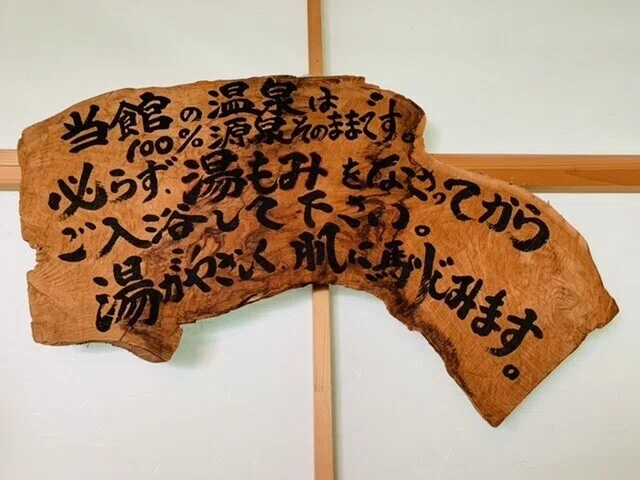 当館の温泉は
100%源泉そのままです。
必らず、湯もみをなさってから
ご入浴して下さい。
湯がやさしく肌に馴じみます。